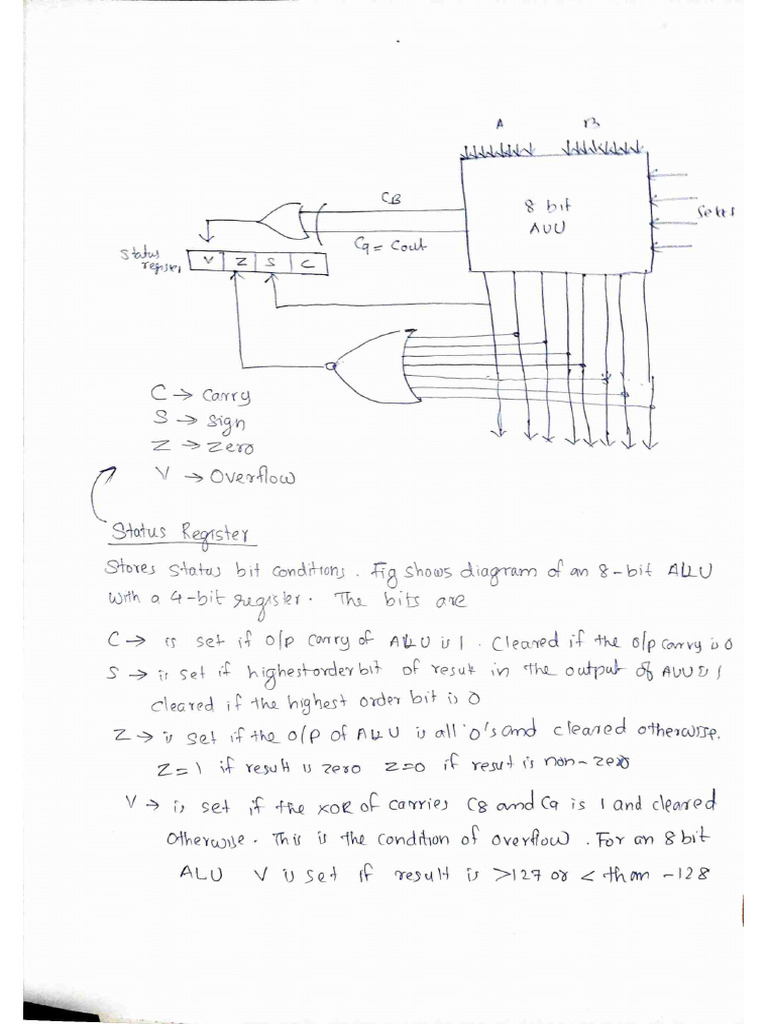 A B
C8
8 bit
ALU
Selet
C9 = Cout
Status
register
V Z S C
C → Carry
S → Sign
Z → Zero
V → Overflow
Status Register
Stores Status bit conditions. Fig shows diagram of an 8-bit ALU
with a 4-bit register. The bits are
C → is set if o/p carry of ALU is 1. Cleared if the o/p carry is 0
S → is set if highest order bit of result in the output of ALU is 1
cleared if the highest order bit is 0
Z → is set if the o/p of ALU is all 0's and cleared otherwise.
Z=1 if result is zero Z=0 if result is non-zero
V → is set if the XOR of carries C8 and C9 is 1 and cleared
Otherwise. This is the condition of overflow. For an 8 bit
ALU V is set if result is >127 or < than -128